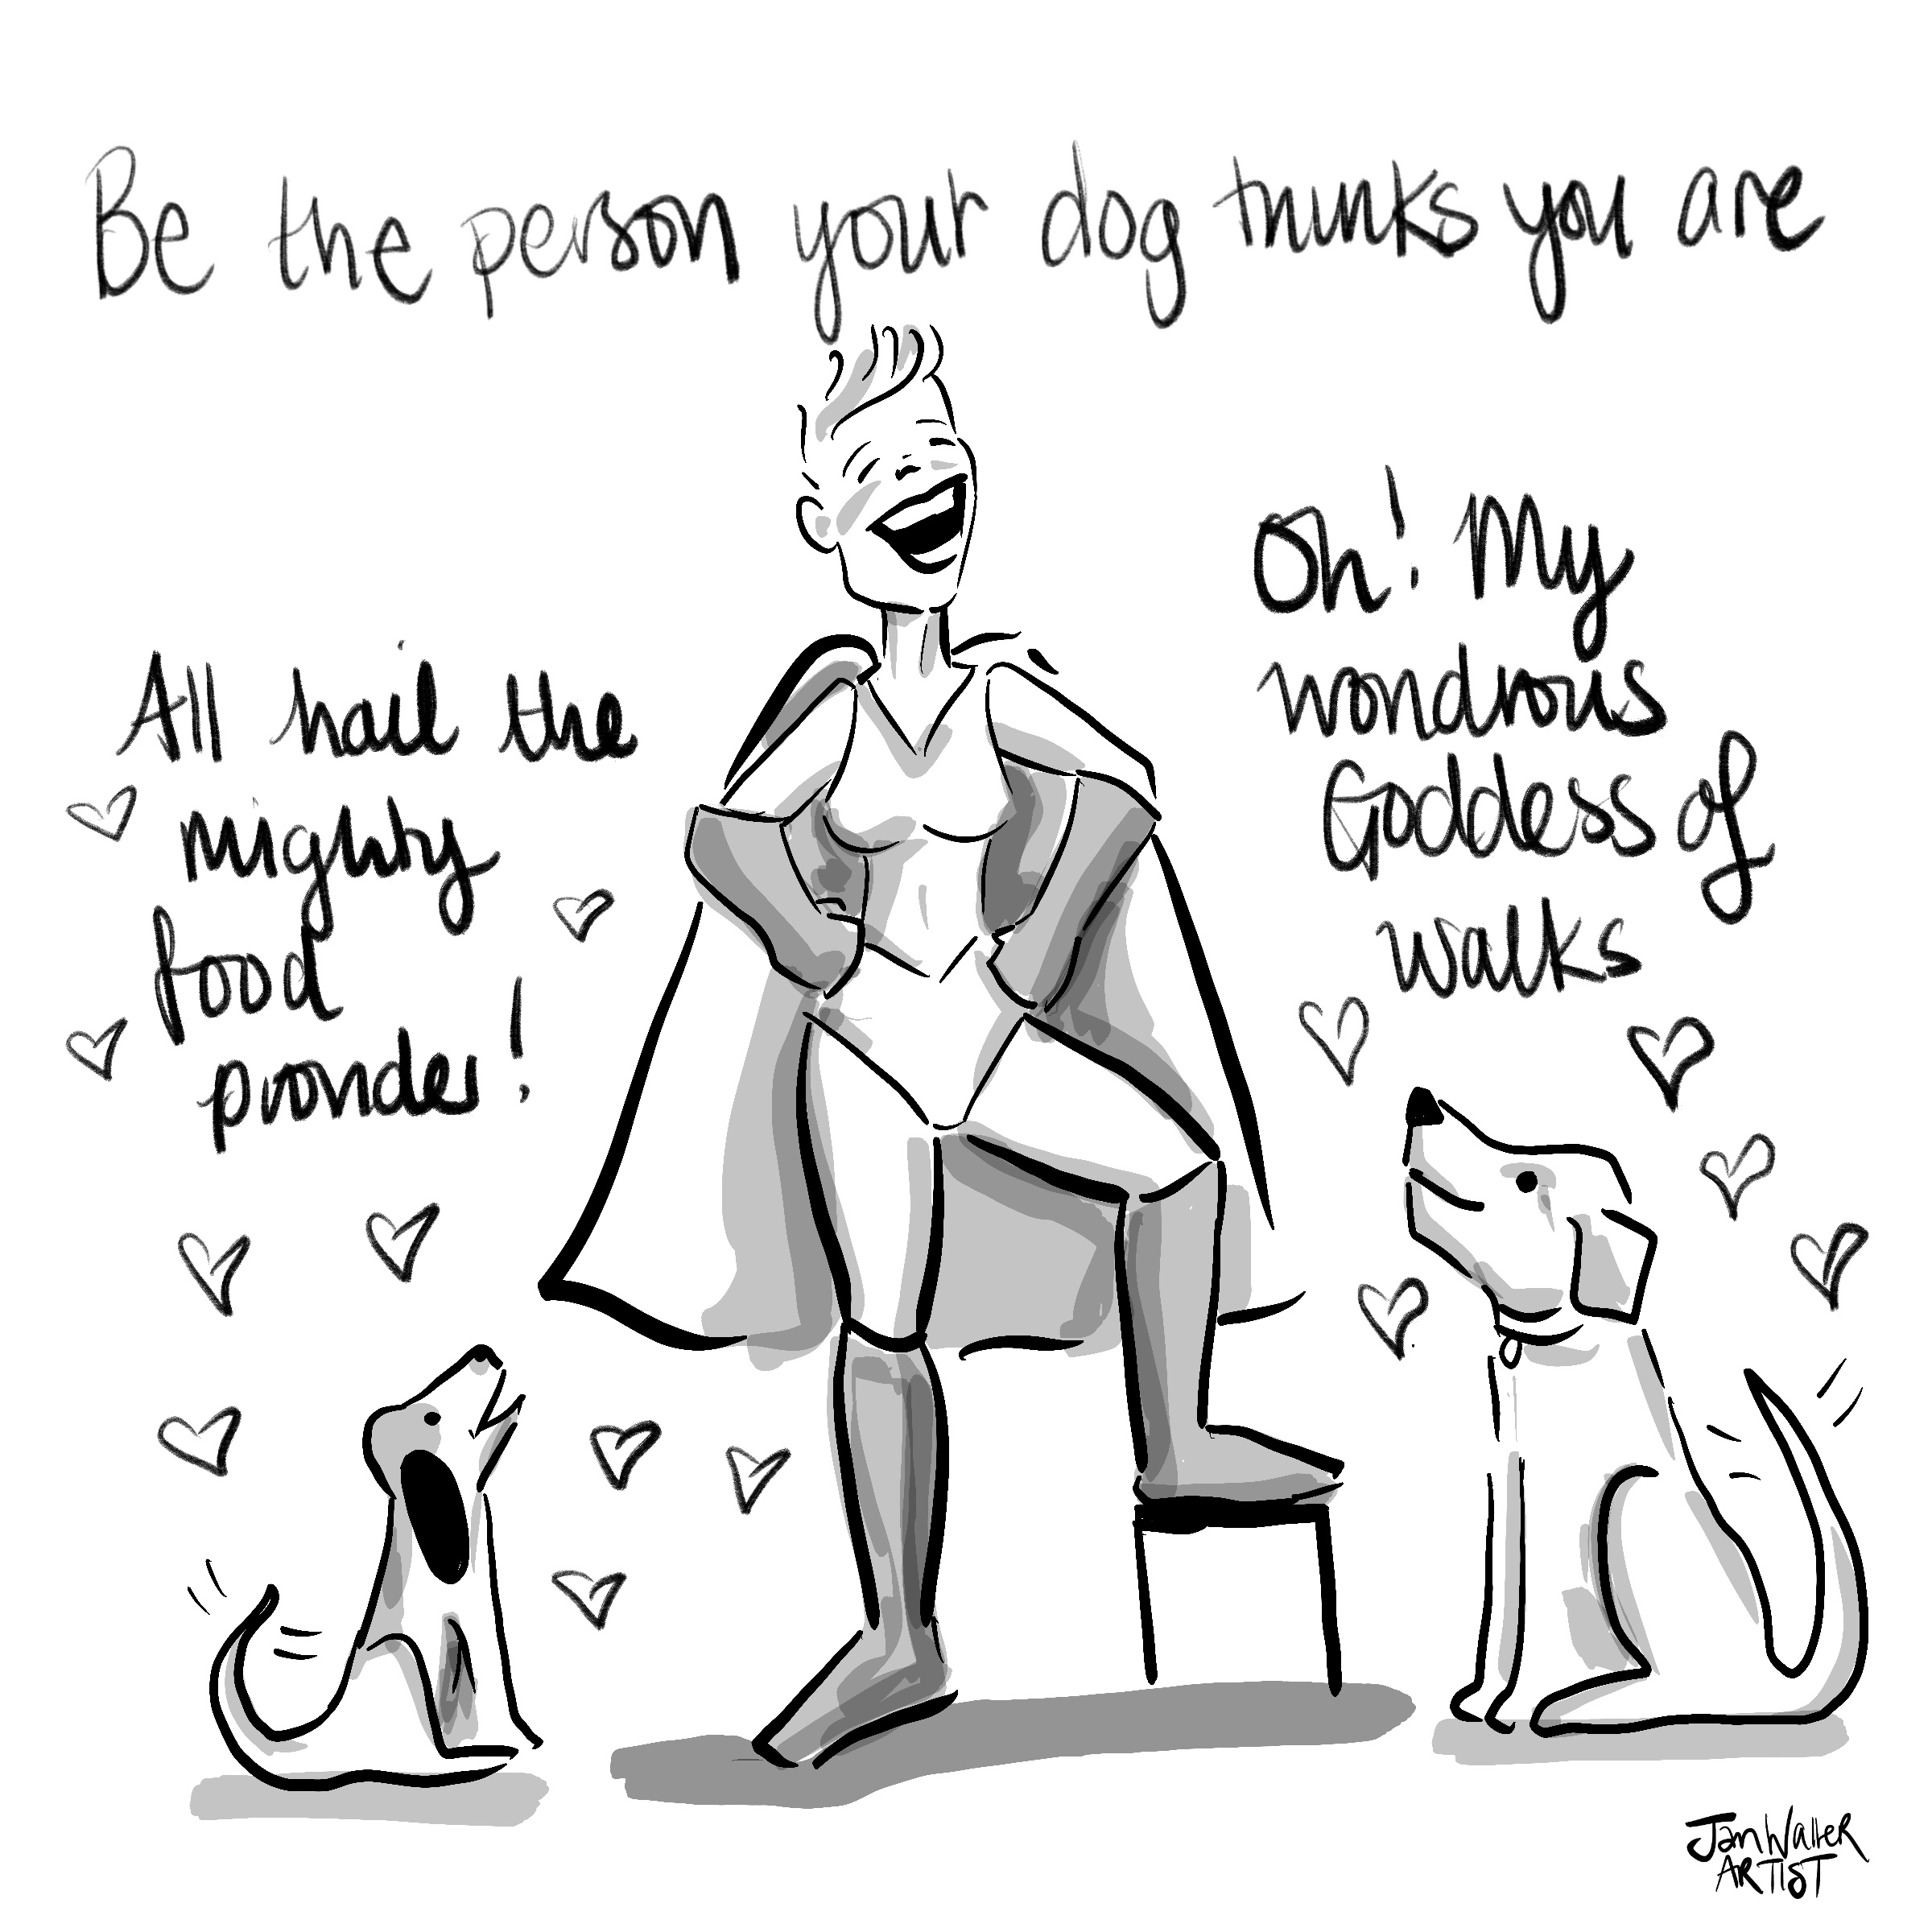 Be the person your dog thinks you are
All hail the
mighty
food
provider!
Oh! My
wondrous
Goddess of
walks
Jan Waller
ARTIST